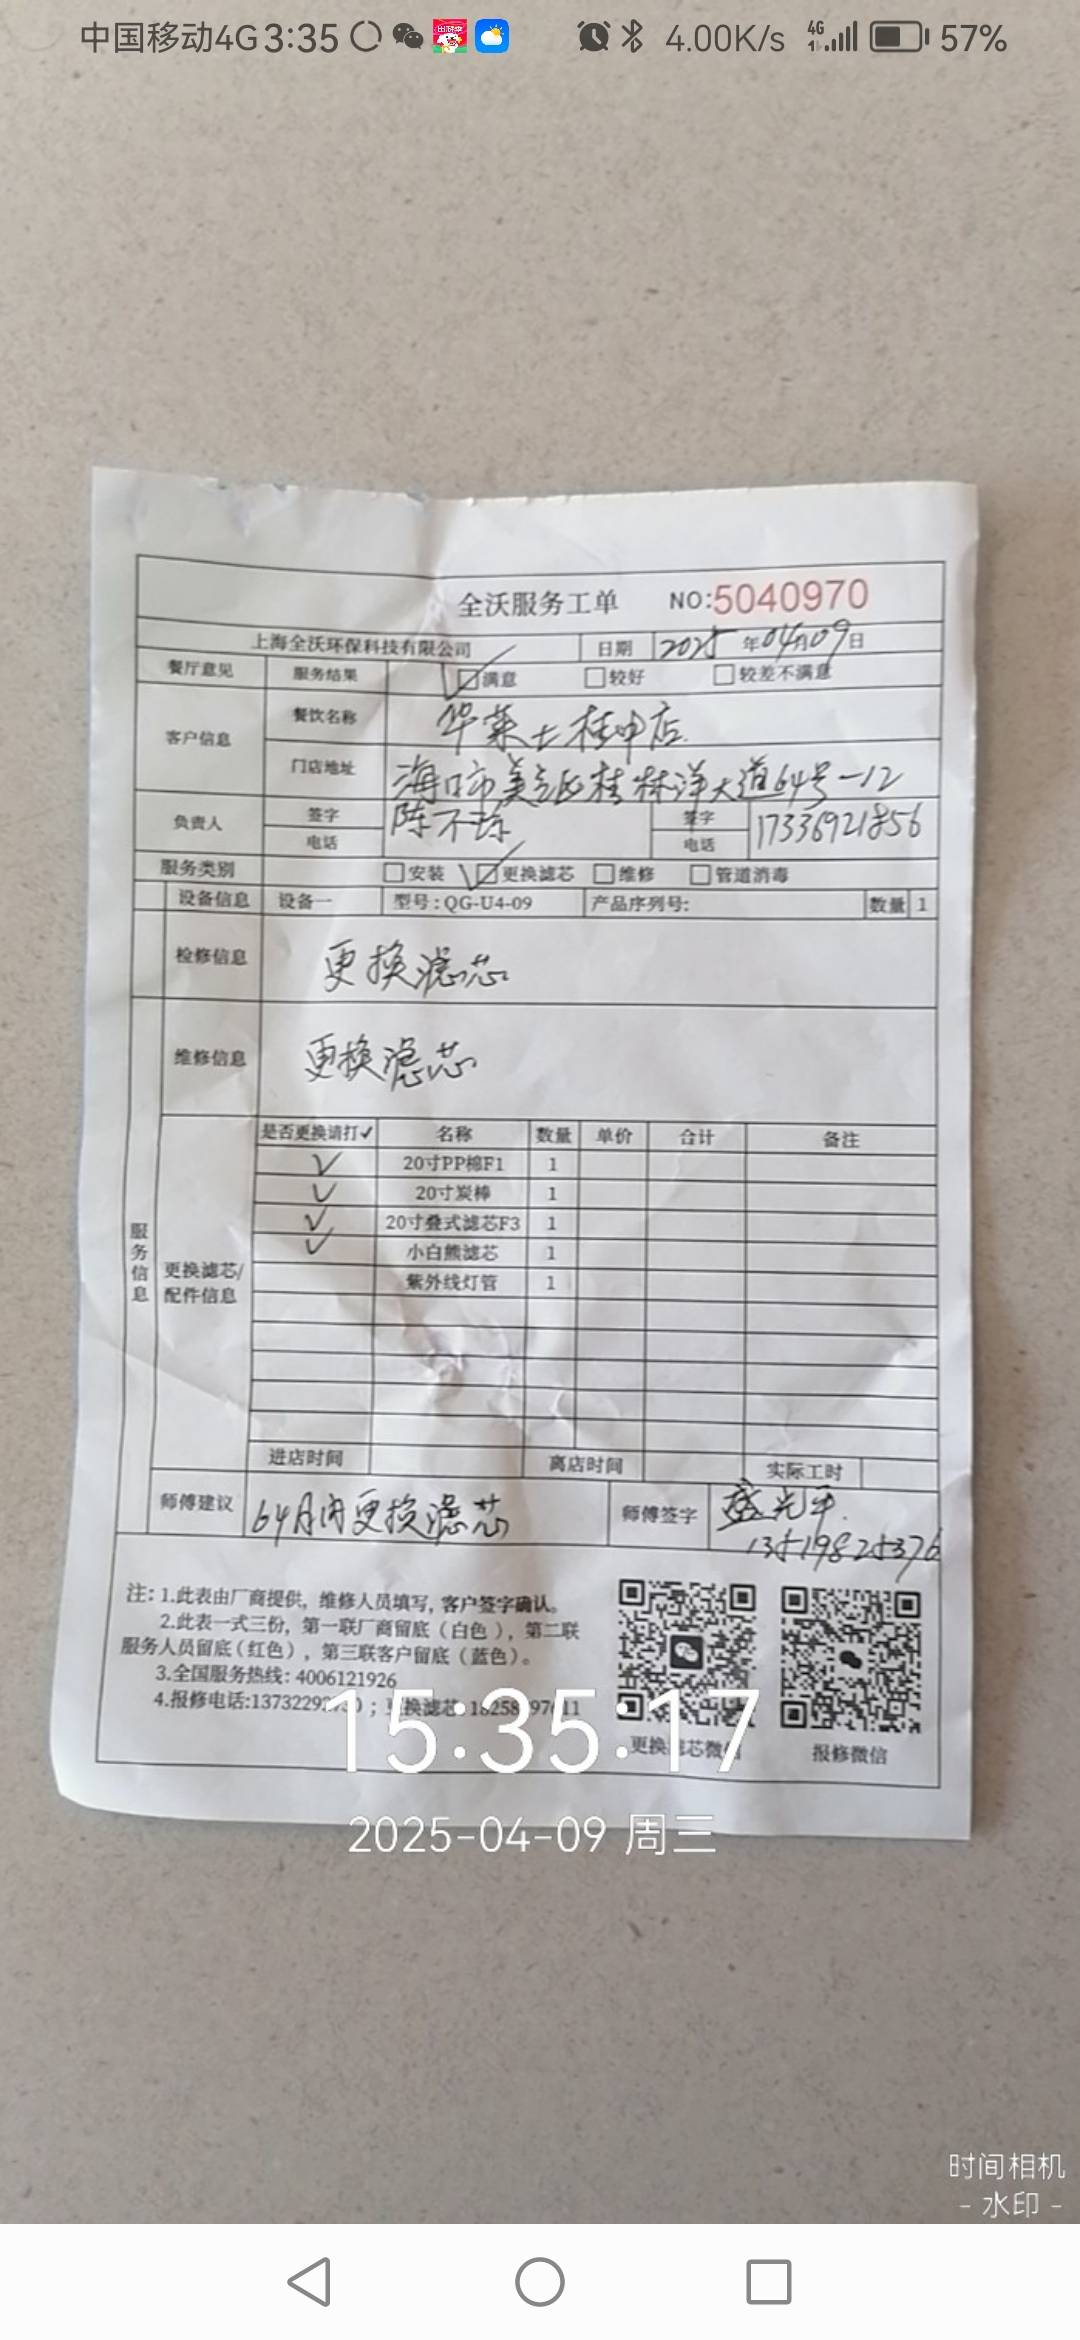 中国移动4G 3:35 4.00K/s 4G 57%
全沃服务工单 NO:5040970
上海全沃环保科技有限公司 日期 2025年04月09日
餐厅意见 服务结果 满意 较好 较差不满意
客户信息 餐饮名称 华莱士桂中店
门店地址 海口市美兰区桂林洋大道64号-12
负责人 签字 陈不 签字
电话 电话 17336921856
服务类别 安装 更换滤芯 维修 管道消毒
设备信息 设备一 型号:QG-U4-09 产品序列号: 数量 1
检修信息 更换滤芯
维修信息 更换滤芯
服务信息
更换滤芯/配件信息
是否更换请打✓ 名称 数量 单价 合计 备注
✓ 20寸PP棉F1 1
✓ 20寸炭棒 1
✓ 20寸叠式滤芯F3 1
✓ 小白熊滤芯 1
紫外线灯管 1
进店时间 离店时间 实际工时
师傅建议 6个月内更换滤芯 师傅签字 盛光平
13519825376
注: 1.此表由厂商提供, 维修人员填写, 客户签字确认。
2.此表一式三份, 第一联厂商留底 (白色), 第二联
服务人员留底 (红色), 第三联客户留底 (蓝色)。
3.全国服务热线: 4006121926
4.报修电话: ; 更换滤芯:
更换滤芯微信 报修微信
15:35:17
2025-04-09 周三
时间相机
- 水印 -